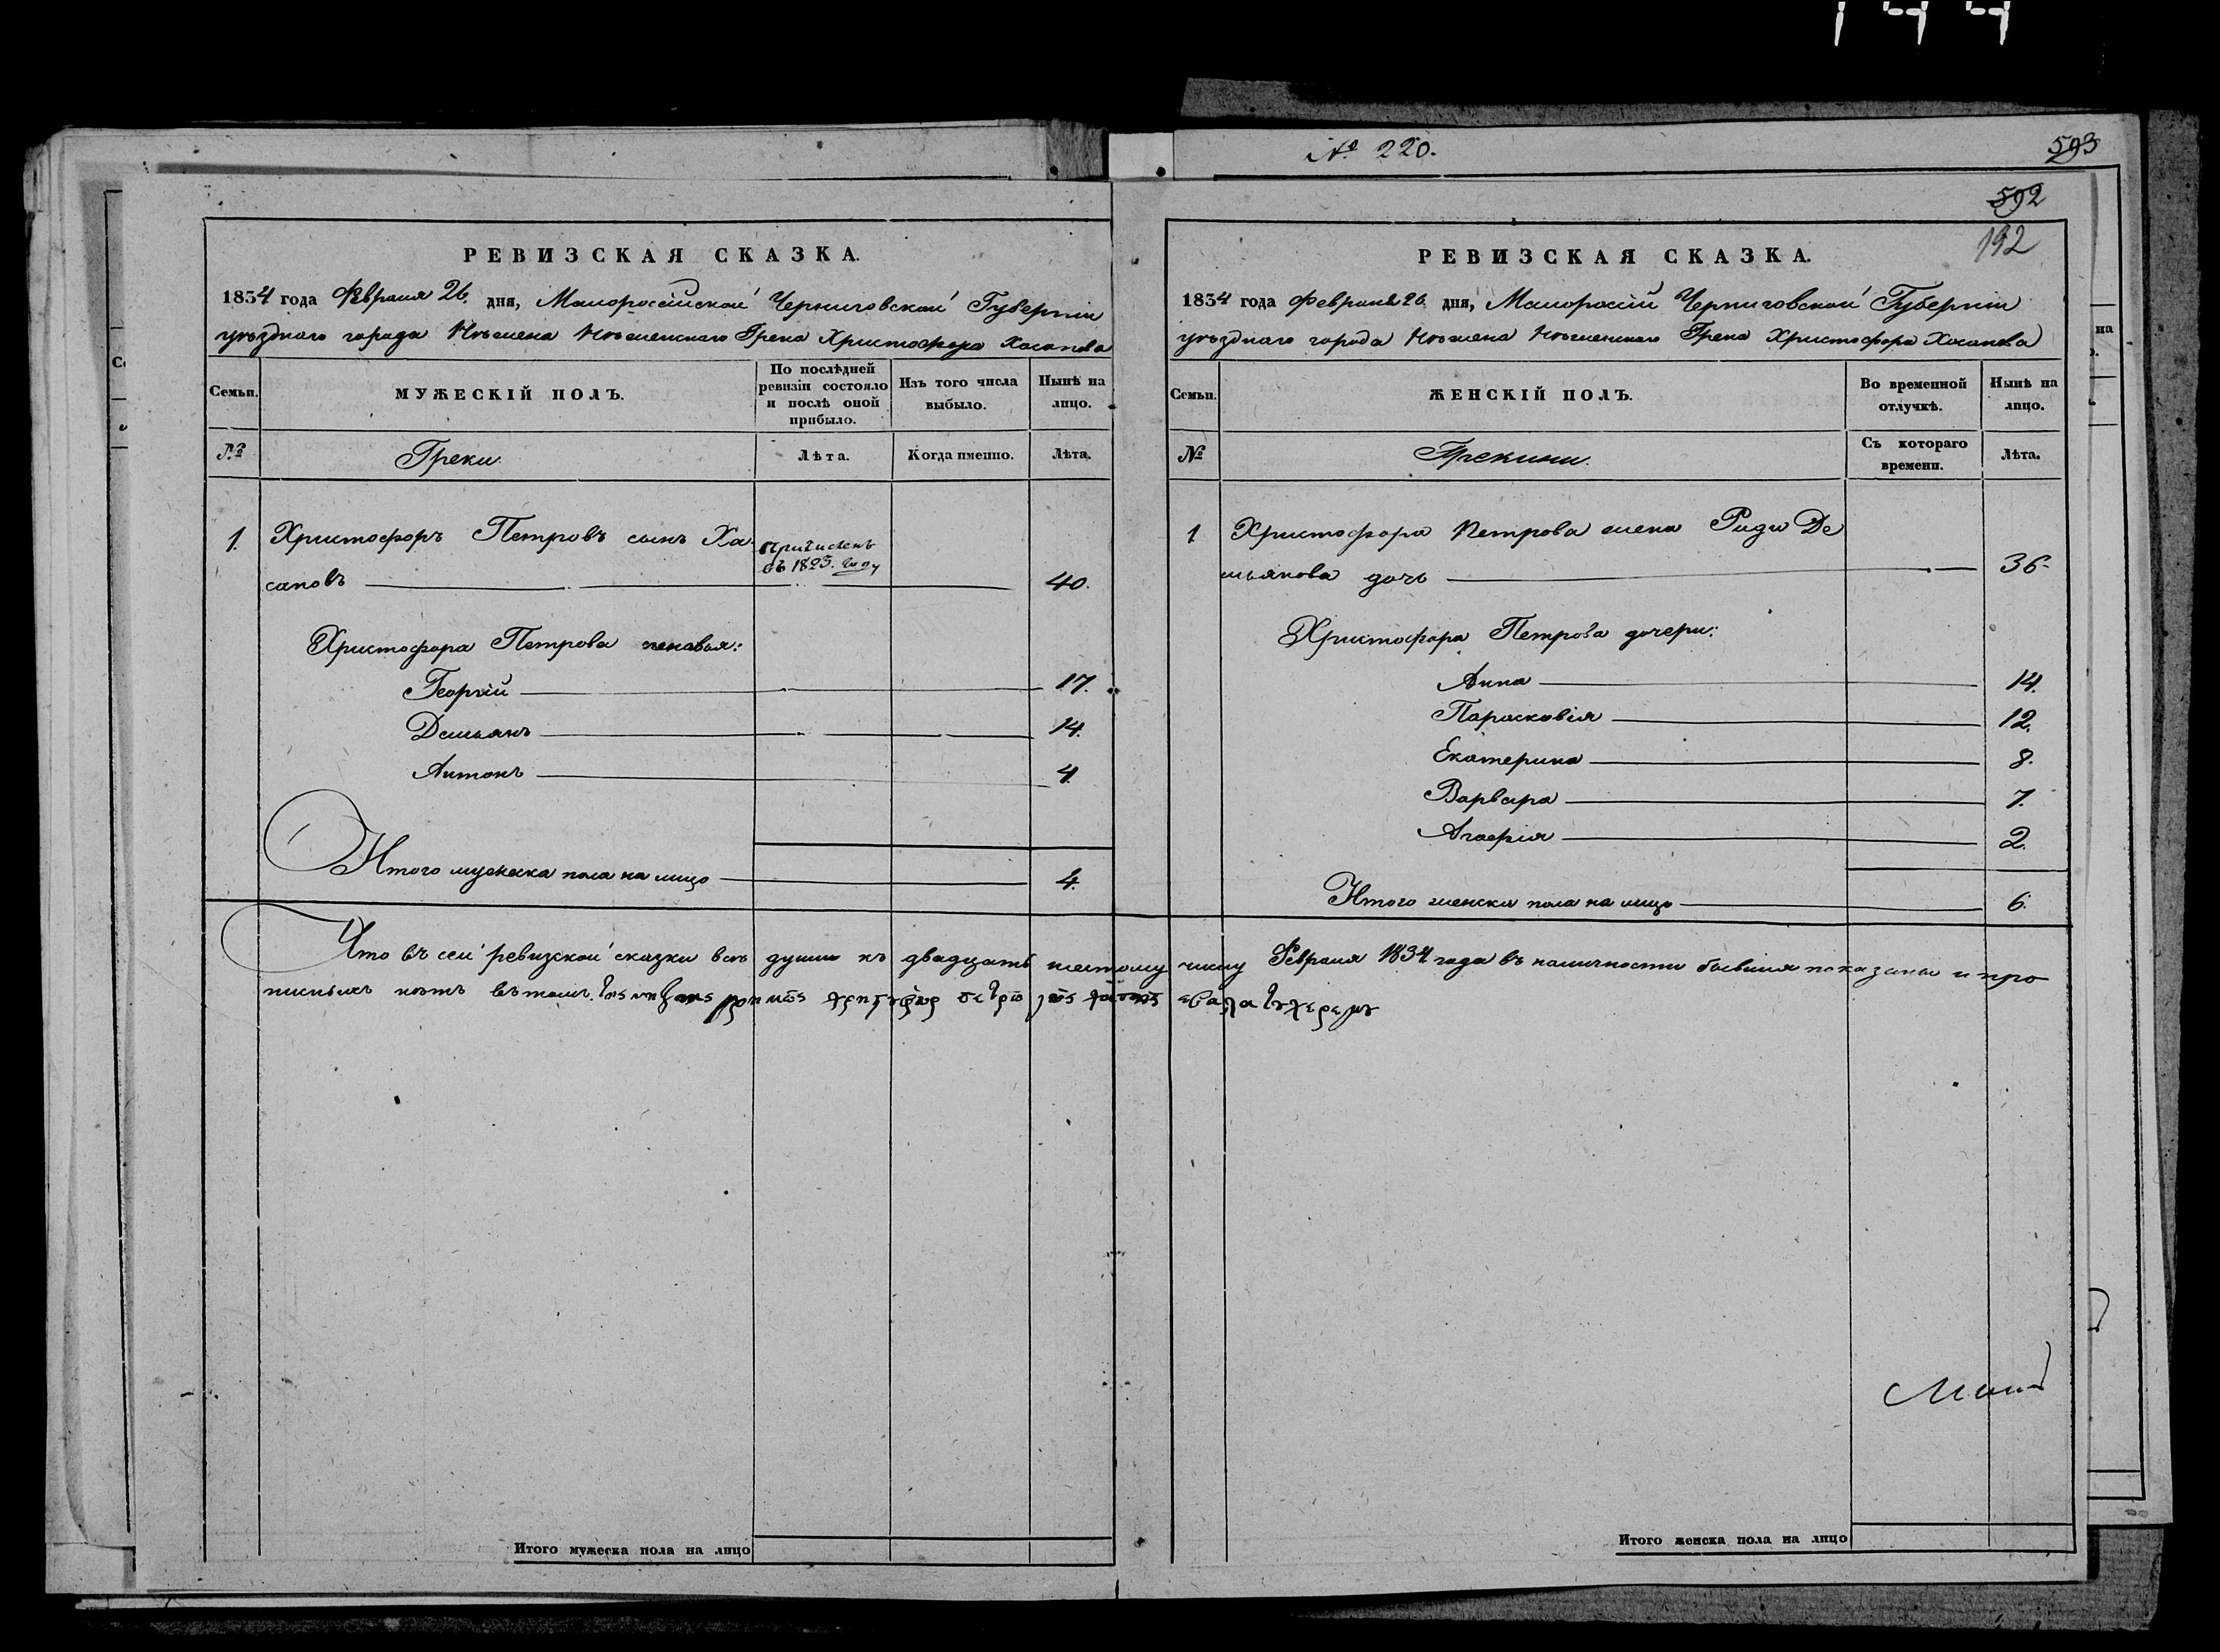 144
№ 220.
593
592
192
РЕВИЗСКАЯ СКАЗКА.
1834 года Февраля 26. дня, Малороссійской Черниговской Губерніи
уѣзднаго города Нѣжена Нѣженскаго Грека Христофора Хасапова
Семьи.
МУЖЕСКІЙ ПОЛЪ.
По послѣдней ревизіи состояло и послѣ оной прибыло.
Изъ того числа выбыло.
Нынѣ на лицо.
№
Греки.
Лѣта.
Когда именно.
Лѣта.
1. Христофоръ Петровъ сынъ Ха
причисленъ
съ 1825. году
саповъ 40.
Христофора Петрова сыновья:
Георгій 17.
Демьянъ 14.
Антонъ 4.
Итого мужеска пола на лицо 4.
РЕВИЗСКАЯ СКАЗКА.
1834 года Февраля 26 дня, Малоросій Черниговской Губерніи
уѣзднаго города Нѣжена Нѣженскаго Грека Христофора Хасапова
Семьи.
ЖЕНСКІЙ ПОЛЪ.
Во временной отлучкѣ.
Нынѣ на лицо.
№
Грекини.
Съ котораго времени.
Лѣта.
1 Христофора Петрова жена Де
мьянова дочь 36.
Христофора Петрова дочери:
Анна 14.
Парасковія 12.
Екатерина 8.
Варвара 7.
Агафія 2.
Итого женска пола на лицо 6.
Что въ сей ревизской сказки всѣ души къ двадцать шестому числу Февраля 1834 года въ наличности бывшія показаны и про
писныхъ нѣтъ въ томъ.
Итого мужеска пола на лицо
Итого женска пола на лицо